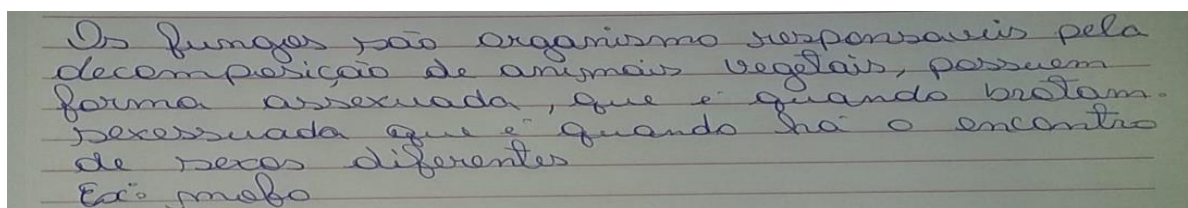 Os fungos são organismo responsaveis pela
decomposição de animais vegetais, possuem
forma assexuada, que é quando brotam.
sexessuada que é quando há o encontro
de sexos diferentes
Ex: mofo